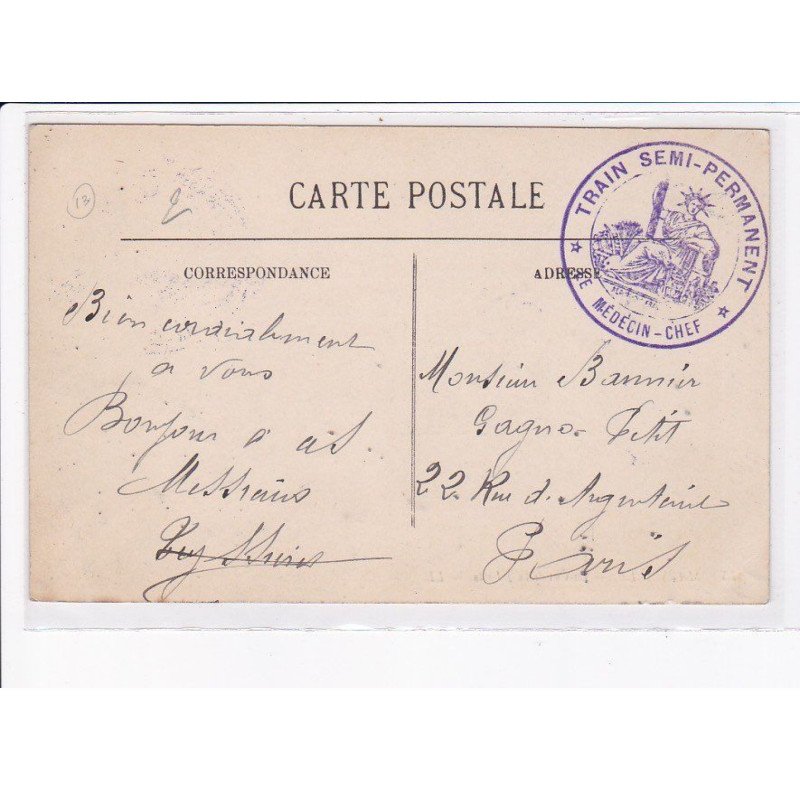 13
CARTE POSTALE
TRAIN SEMI-PERMANENT
LE MÉDECIN-CHEF
CORRESPONDANCE
ADRESSE
Bien cordialement
a vous
Bonjour a
Messieurs
Monsieur Bannier
Gagne-Petit
22 Rue d'Argenteuil
Paris